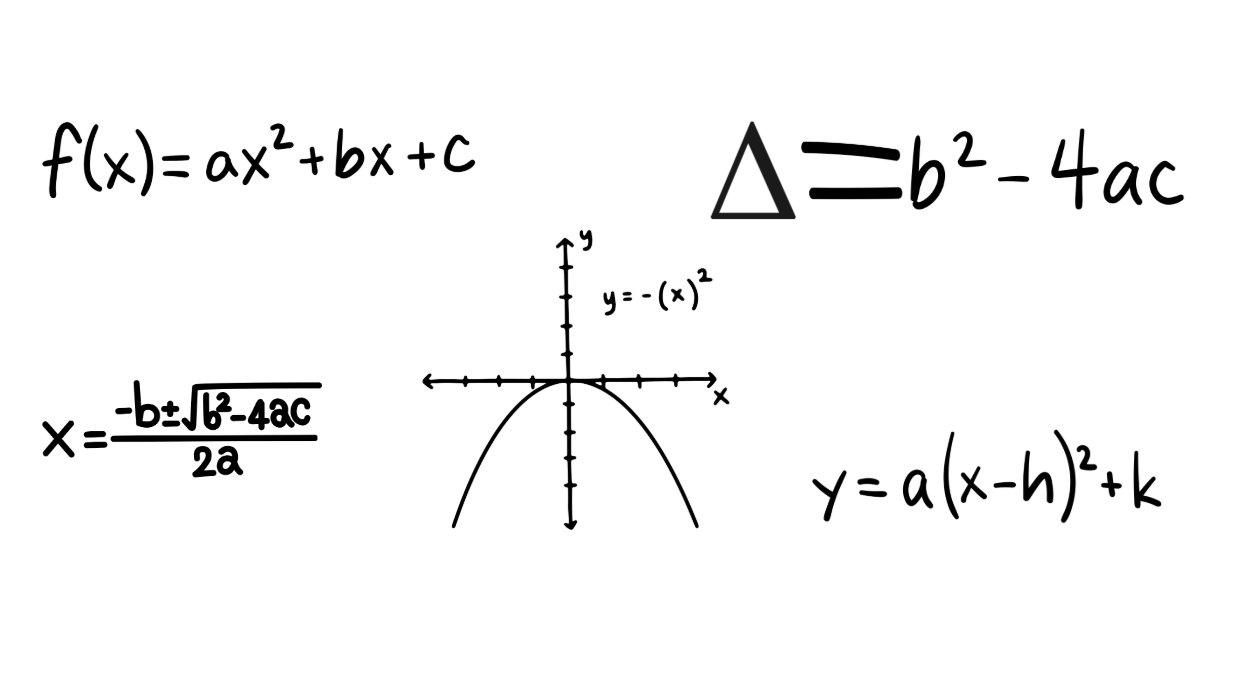 f(x) = ax² + bx + c
Δ = b² - 4ac
y
y = -(x)²
x
x = -b±√b²-4ac / 2a
y = a(x-h)² + k